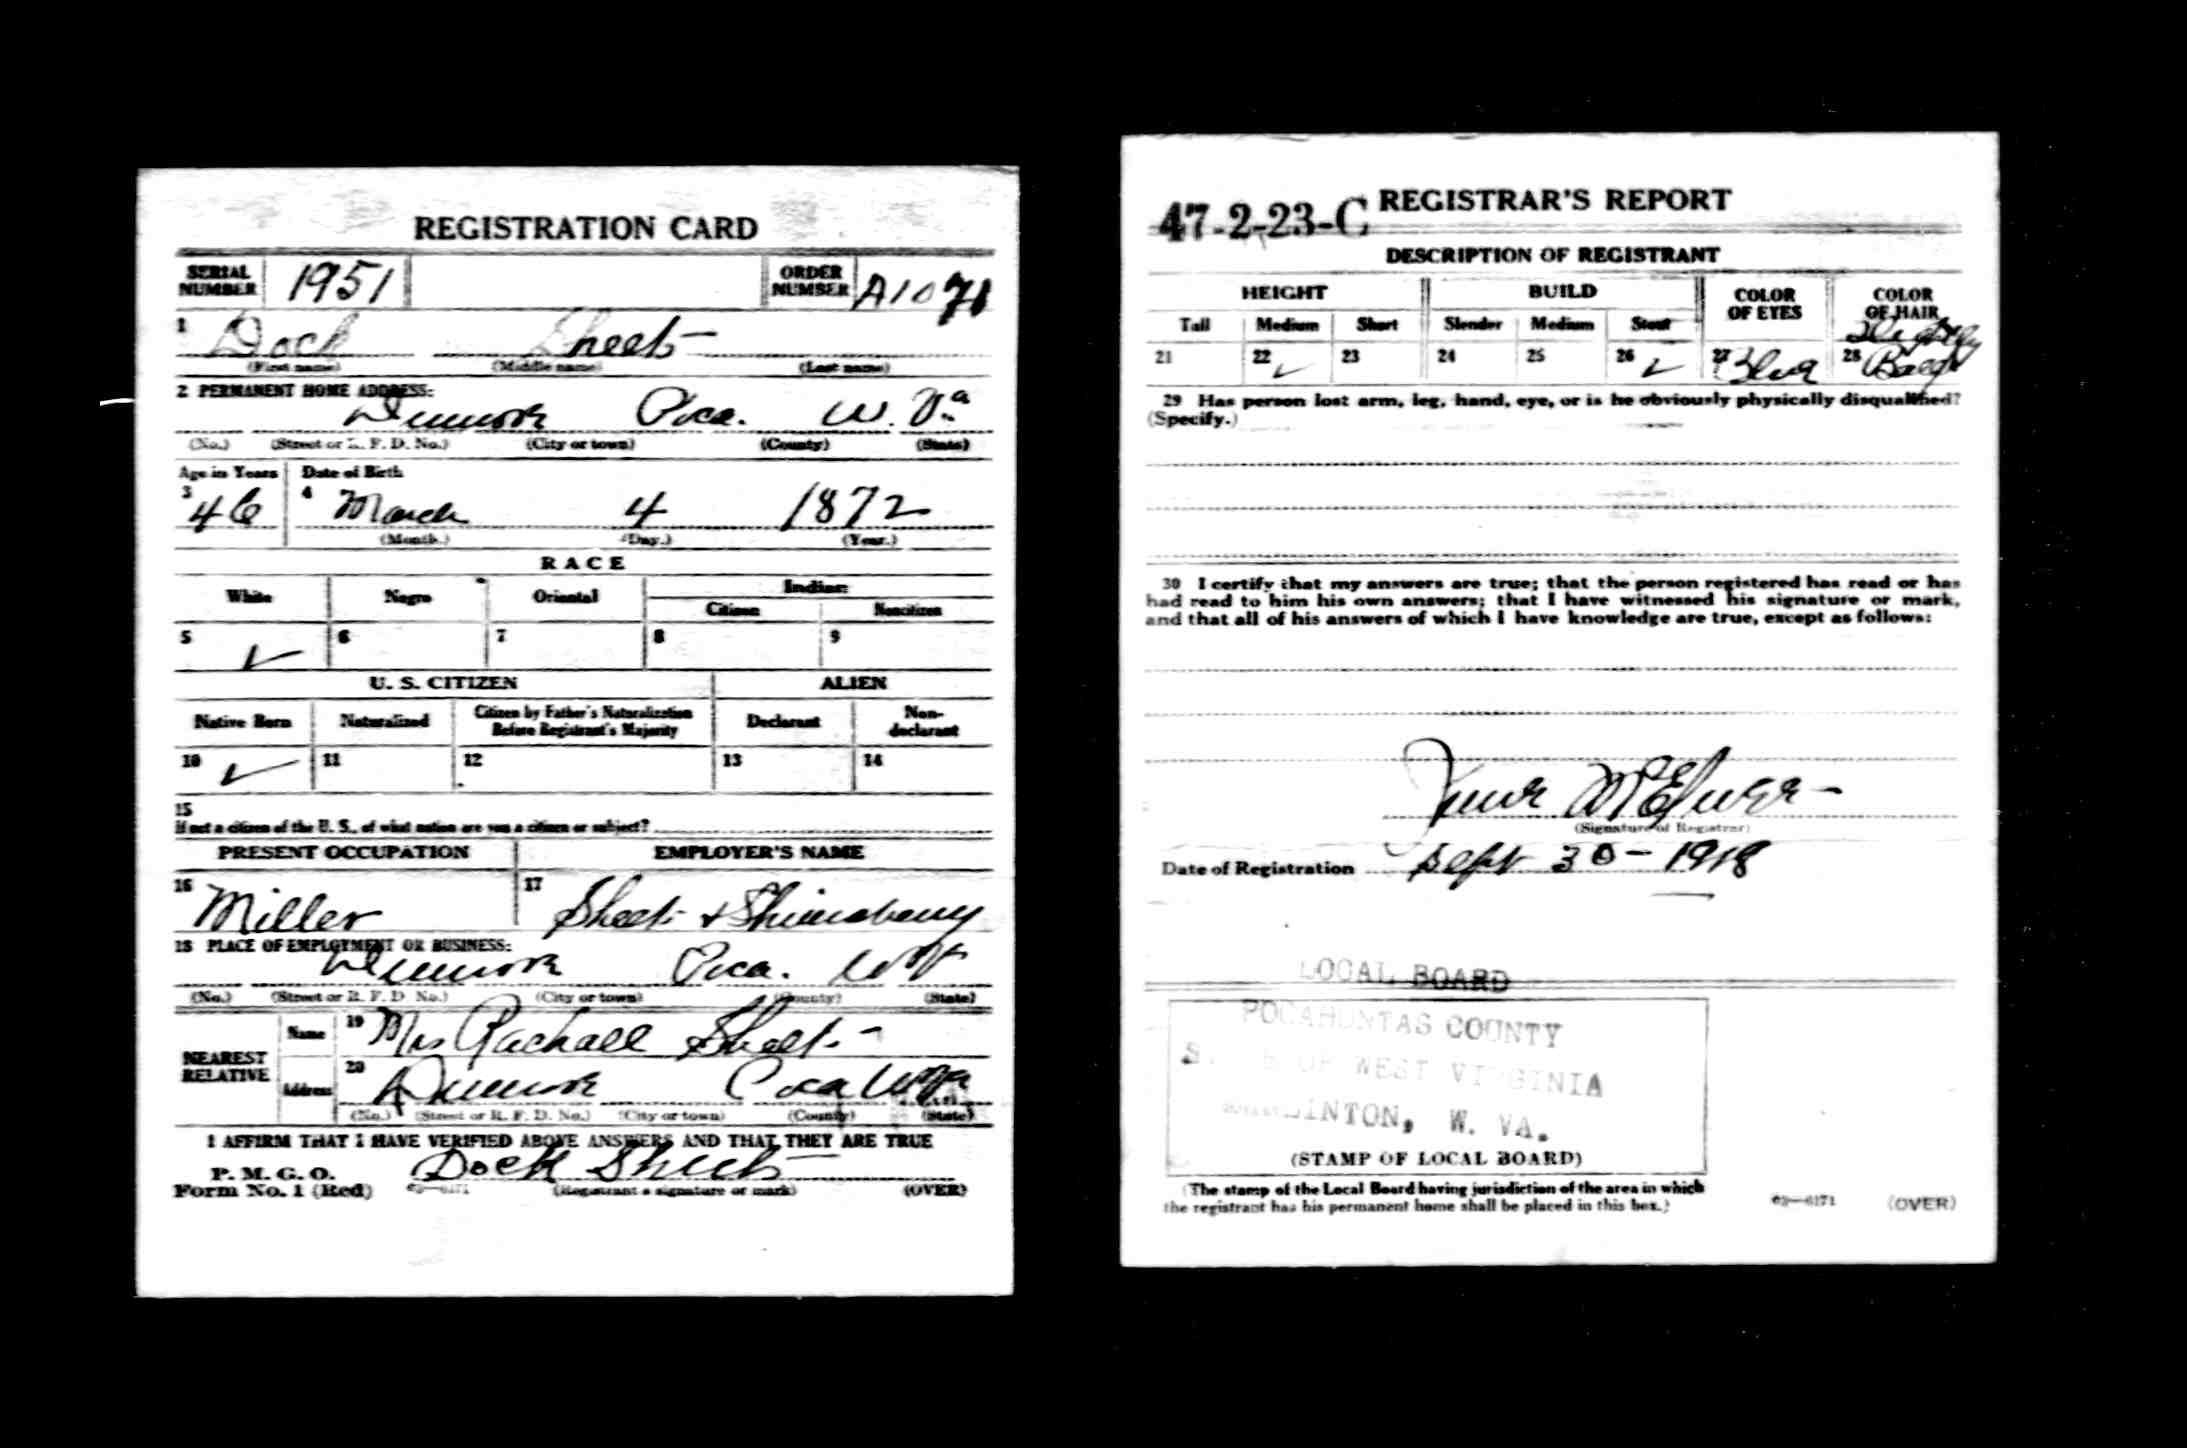 REGISTRATION CARD
SERIAL NUMBER 1951 ORDER NUMBER A1071
1 Dock Sheets
(First name) (Middle name) (Last name)
2 PERMANENT HOME ADDRESS:
Dunmore Poca. W. Va
(No.) (Street or R. F. D. No.) (City or town) (County) (State)
Age in Years Date of Birth
3 46 4 March 4 1872
(Month.) (Day.) (Year.)
RACE
White Negro Oriental Indian
Citizen Noncitizen
5 ✓ 6 7 8 9
U. S. CITIZEN ALIEN
Native Born Naturalized Citizen by Father's Naturalization Before Registrant's Majority Declarant Non-declarant
10 ✓ 11 12 13 14
15
If not a citizen of the U. S., of what nation are you a citizen or subject?
PRESENT OCCUPATION EMPLOYER'S NAME
16 Miller 17 Sheets & Shinaberry
18 PLACE OF EMPLOYMENT OR BUSINESS:
Dunmore Poca. W Va
(No.) (Street or R. F. D. No.) (City or town) (County) (State)
NEAREST RELATIVE
Name 19 Mrs Rachall Sheets
Address 20 Dunmore Poca W Va
(No.) (Street or R. F. D. No.) (City or town) (County) (State)
I AFFIRM THAT I HAVE VERIFIED ABOVE ANSWERS AND THAT THEY ARE TRUE
P. M. G. O.
Form No. 1 (Red) Dock Sheets
03—6171 (Registrant's signature or mark) (OVER)
47-2-23-C REGISTRAR'S REPORT
DESCRIPTION OF REGISTRANT
HEIGHT BUILD COLOR OF EYES COLOR OF HAIR
Tall Medium Short Slender Medium Stout
21 22 ✓ 23 24 25 26 ✓ 27 Blue 28 Slightly Bald
29 Has person lost arm, leg, hand, eye, or is he obviously physically disqualified?
(Specify.)
30 I certify that my answers are true; that the person registered has read or has
had read to him his own answers; that I have witnessed his signature or mark,
and that all of his answers of which I have knowledge are true, except as follows:
McElwee
(Signature of Registrar)
Date of Registration Sept 30 - 1918
LOCAL BOARD
POCAHONTAS COUNTY
STATE OF WEST VIRGINIA
MARLINTON, W. VA.
(STAMP OF LOCAL BOARD)
(The stamp of the Local Board having jurisdiction of the area in which
the registrant has his permanent home shall be placed in this box.)
03—6171 (OVER)